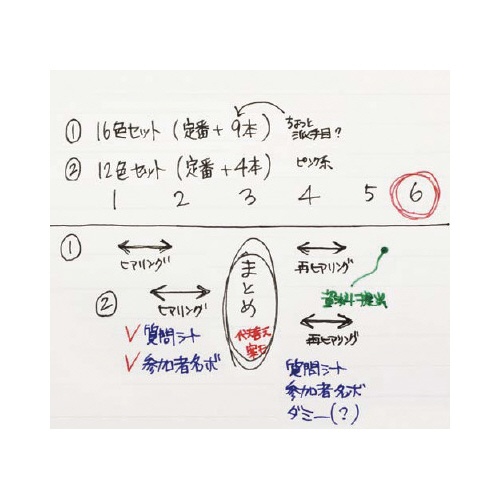 ① 16色セット (定番+9本) ちょっと派手目?
② 12色セット (定番+4本) ピンク系
1 2 3 4 5 6
① ヒアリング
再ヒアリング
② ヒアリング
まとめ
再ヒアリング
✓ 質問シート
✓ 参加者名ボ
質問シート
参加者名ボ
ダミー(?)